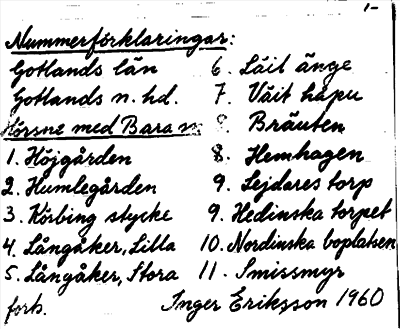 1-
Nummerförklaringar:
Gotlands län
Gotlands n. hd.
Hörsne med Bara
1. Höjgården
2. Humlegården
3. Körbing stycke
4. Långåker, Lilla
5. Långåker, Stora
forts.
6. Läit änge
7. Väit hapu
8. Bräuten
8. Hemhagen
9. Lejdares torp
9. Hedinska torpet
10. Nordinska boplatsen
11. Smissmyr
Inger Eriksson 1960